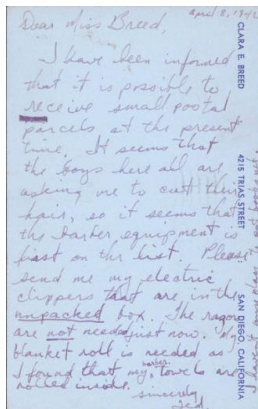 April 8, 1942
Dear Miss Breed,
I have been informed
that it is possible to
receive small postal
parcels at the present
time. It seems that
the boys here all are
asking me to cut their
hair, so it seems that
the barber equipment is
first on the list. Please
send me my electric
clippers that are in the
unpacked box. The razors
are not needed just now. My
blanket roll is needed as
I found that my barber towels are
rolled inside.
sincerely
Ted
CLARA E. BREED
4215 TRIAS STREET
SAN DIEGO, CALIFORNIA